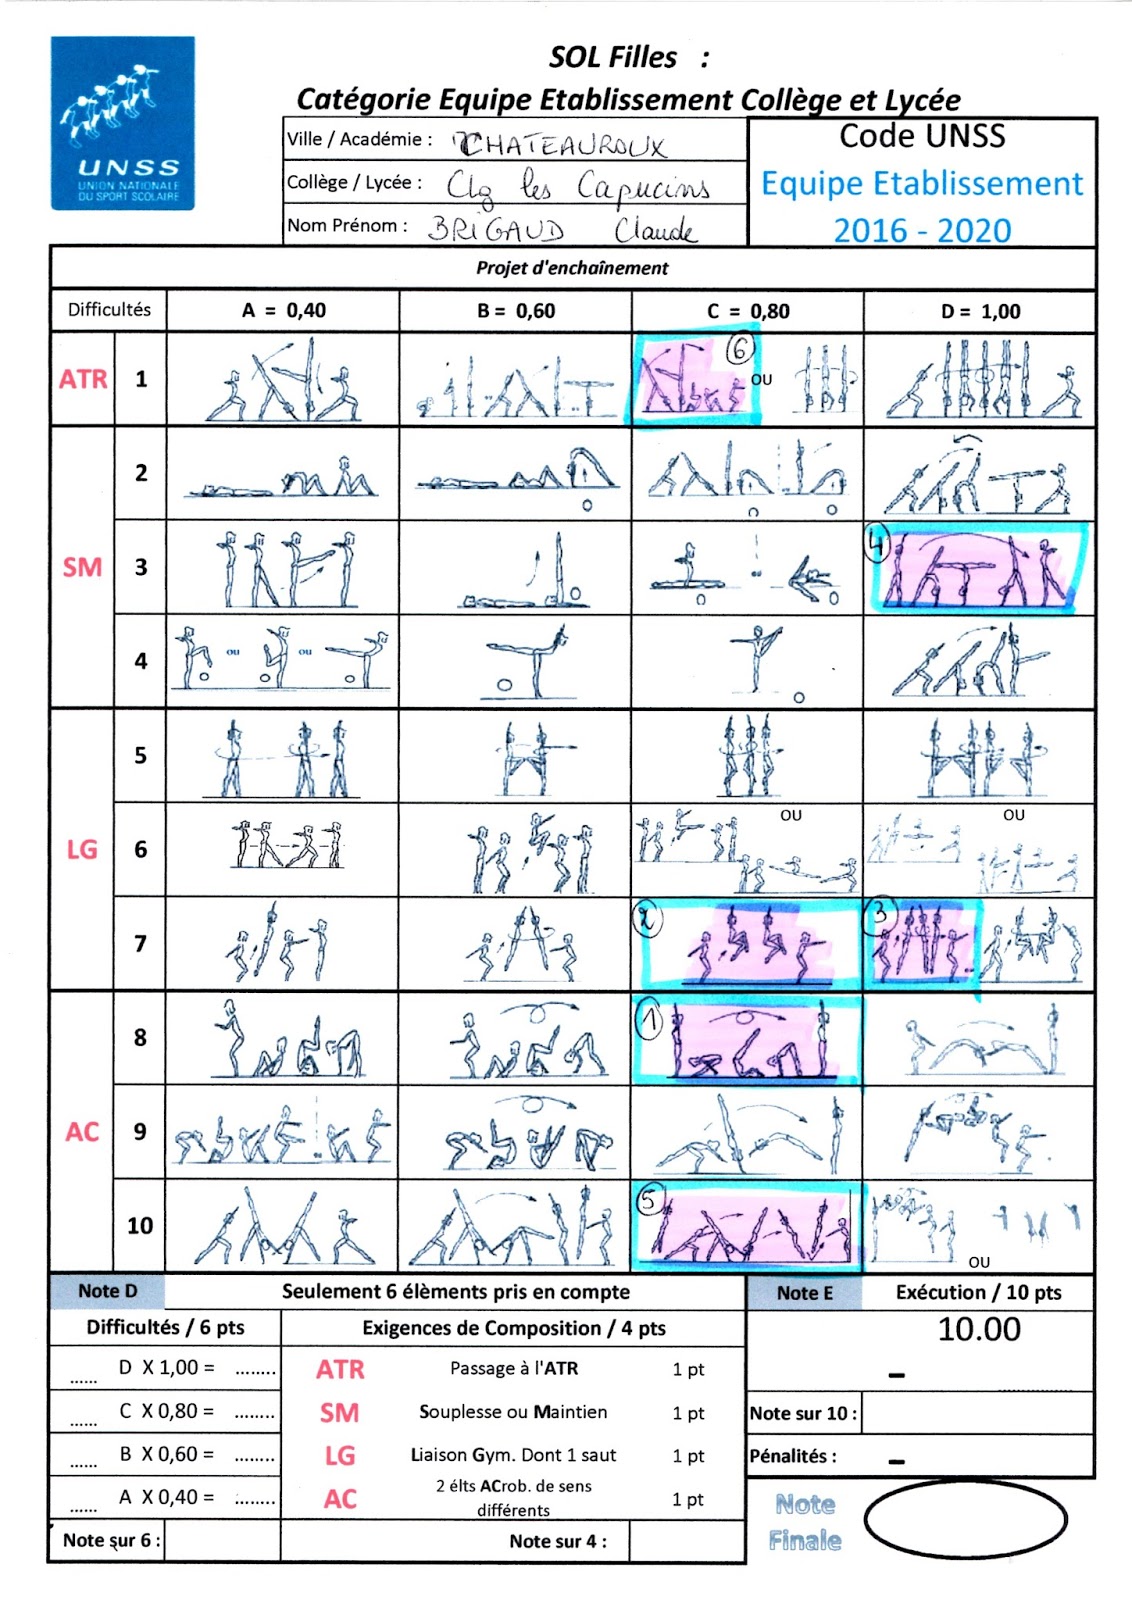 SOL Filles :
Catégorie Equipe Etablissement Collège et Lycée
UNSS
UNION NATIONALE
DU SPORT SCOLAIRE
Ville / Académie : CHATEAUROUX
Collège / Lycée : Clg les Capucins
Nom Prénom : BRIGAUD Claude
Code UNSS
Equipe Etablissement
2016 - 2020
Projet d'enchaînement
Difficultés A = 0,40 B = 0,60 C = 0,80 D = 1,00
ATR 1 6 OU
2
SM 3 4
4 ou ou
5
LG 6 OU OU
7 2 3
8 1
AC 9
10 5 OU
Note D Seulement 6 élèments pris en compte Note E Exécution / 10 pts
Difficultés / 6 pts Exigences de Composition / 4 pts 10.00
...... D X 1,00 = ........ ATR Passage à l'ATR 1 pt –
...... C X 0,80 = ........ SM Souplesse ou Maintien 1 pt Note sur 10 :
...... B X 0,60 = ........ LG Liaison Gym. Dont 1 saut 1 pt Pénalités : –
...... A X 0,40 = ........ AC 2 élts ACrob. de sens différents 1 pt
Note Finale
Note sur 6 : Note sur 4 :